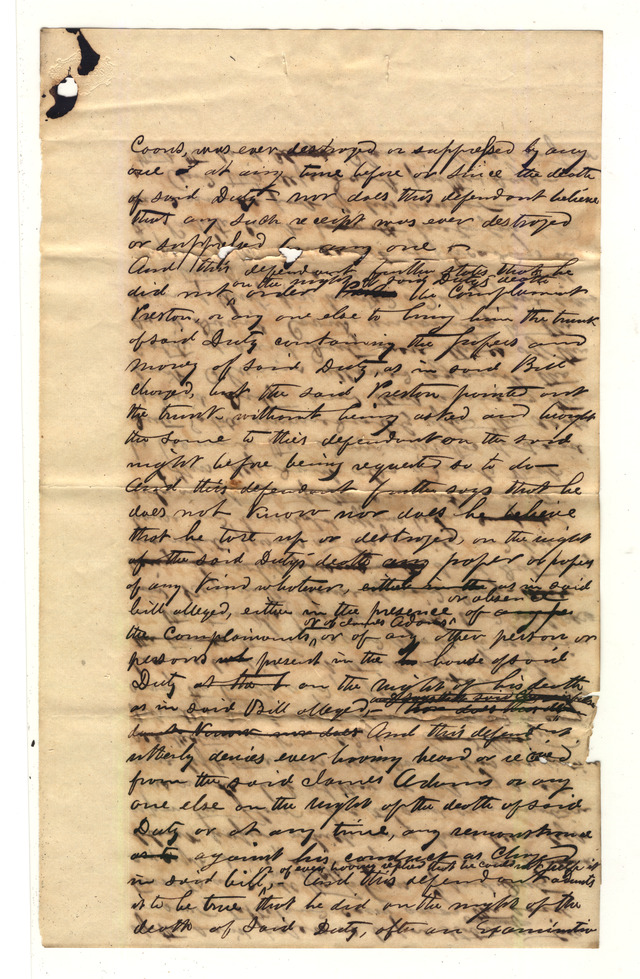 Coons, was ever destroyed or suppressed by any
one at any time before or since the death
of said Duty – nor does this defendant believe
that any such receipt was ever destroyed
or suppressed by any one
And this defendant further states that he
on the night of said Duty's death
did not order the Complainant
Preston, or any one else to bring him the trunk
of said Duty containing the papers and
money of said Duty, as in said Bill
charged, but the said Preston pointed out
the trunk without being asked and brought
the same to this defendant on the said
night before being requested so to do—
And this defendant further says that he
does not know nor does he believe
that he tore up or destroyed, on the night
of the said Duty's death any paper or papers
of any kind whatever, either in the as in said
or absence
bill alleged, either in the presence of
or of James Adams
the Complainants, or of any other person or
persons present in the house of said
Duty at the on the night of his death
as in said Bill alleged,
And this defendant
utterly denies ever having heard or received
from the said James Adams or any
one else on the night of the death of said
Duty or at any time, any remonstrance
against his conduct as charged
or of ever having replied that he could not help it
in said bill, And this defendant admits
it to be true that he did on the night of the
death of said Duty, after an examination